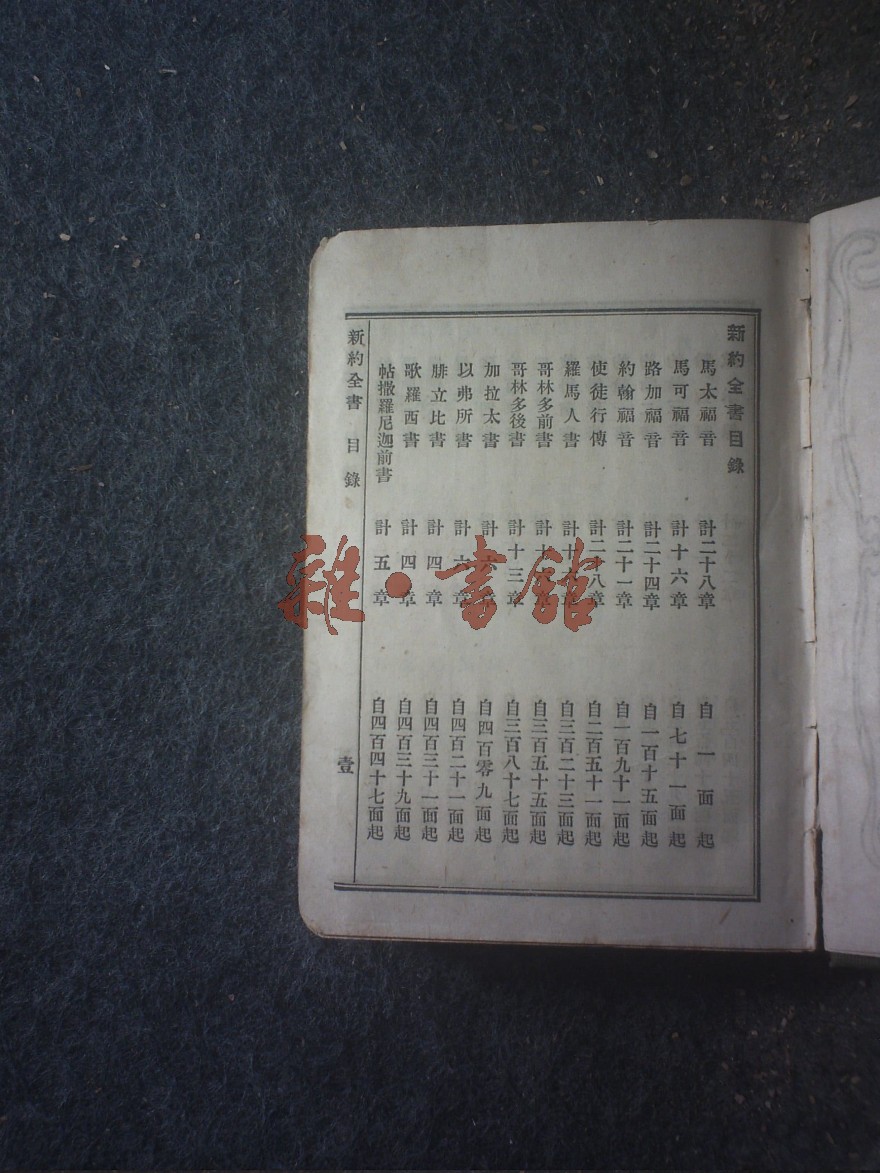 新約全書目錄
馬太福音 計二十八章 自一面起
馬可福音 計十六章 自七十一面起
路加福音 計二十四章 自一百十五面起
約翰福音 計二十一章 自一百九十一面起
使徒行傳 計二八章 自二百五十一面起
羅馬人書 計十章 自三百二十三面起
哥林多前書 計十章 自三百五十五面起
哥林多後書 計十三章 自三百八十七面起
加拉太書 計六章 自四百零九面起
以弗所書 計六章 自四百二十一面起
腓立比書 計四章 自四百三十一面起
歌羅西書 計四章 自四百三十九面起
帖撒羅尼迦前書 計五章 自四百四十七面起
新約全書 目錄 壹
雜·書館